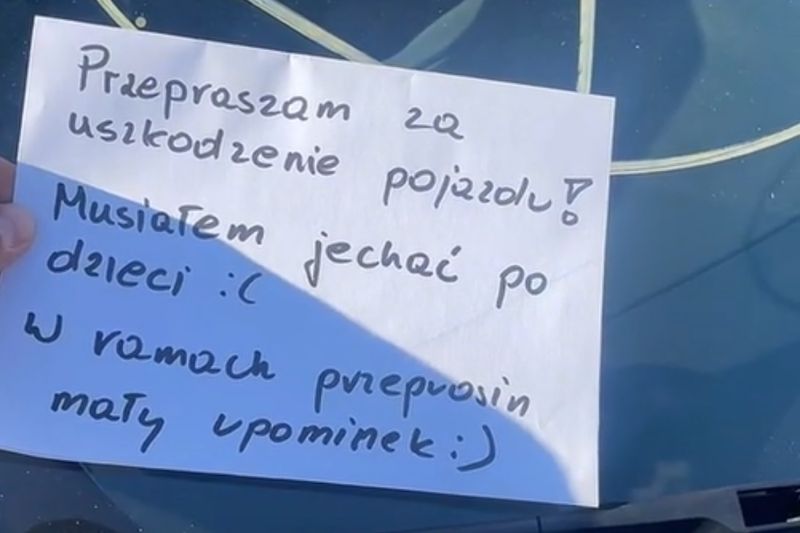 Przepraszam za
uszkodzenie pojazdu!
Musiałem jechać po
dzieci :(
w ramach przeprosin
mały upominek :)